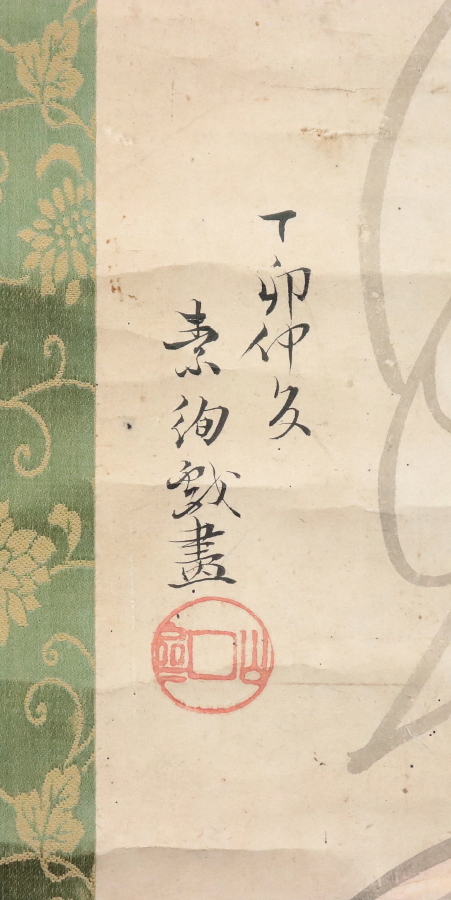 丁卯仲冬
素絢戯畫
山口